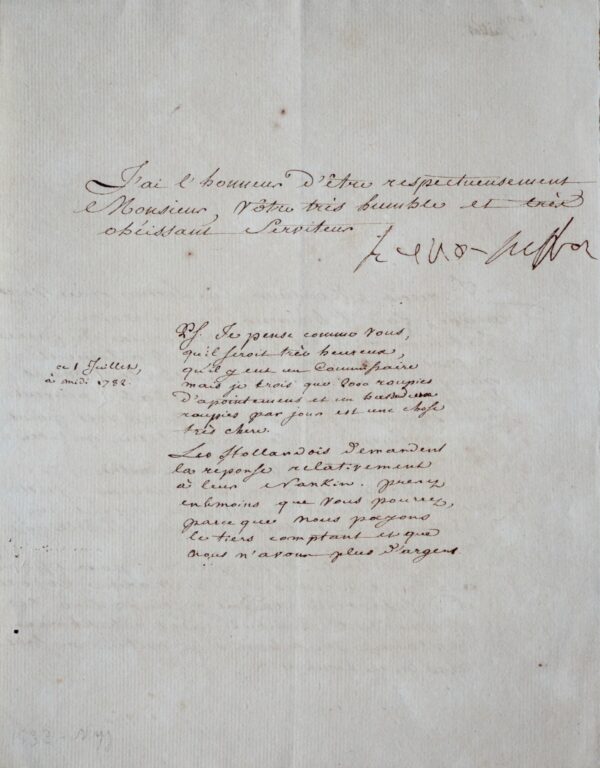 J'ai l'honneur d'être respectueusement
Monsieur, Vôtre très humble et très
obéissant Serviteur
PS. Je pense comme vous,
qu'il seroit très heureux,
qu'il y eut un Commissaire
ce 1 Juillet,
à midi 1782.
mais je crois que 2000 roupies
d'apointemens et un
roupies par jour est une chose
très chere.
Les Hollandois demandent
la réponse relativement
à leur Nankin. prenez
en le moins que vous pourrez,
parce que nous payons
le tiers comptant et que
nous n'avons plus d'argent